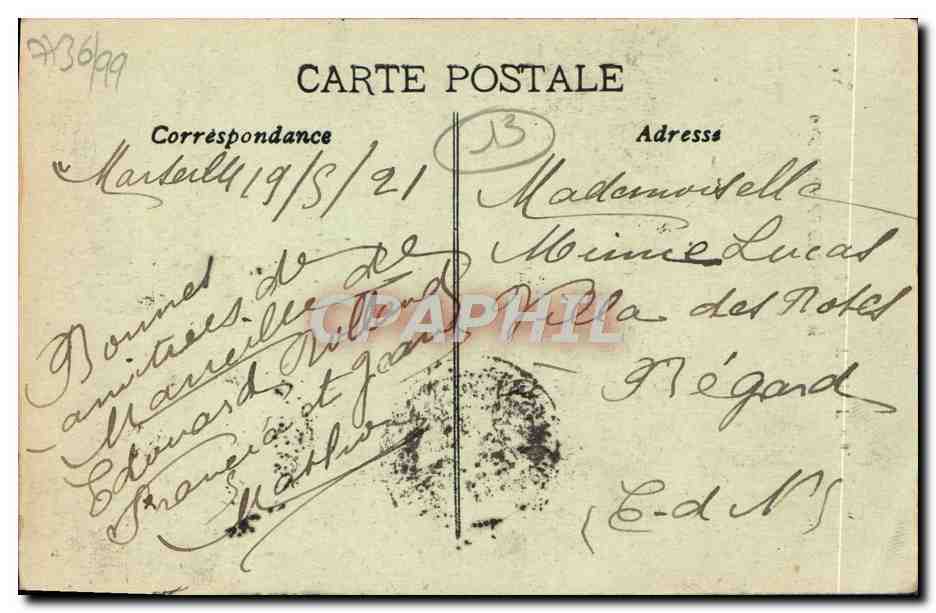 7736/99
CARTE POSTALE
Correspondance
13
Adresse
Marseille 19/5/21
Bonnes
amitiées de
Marseille de
Edouard Rolland
Francia et grand
Mathieu
Mademoiselle
Minnie Lucas
Villa des Roses
Bégard
(C-d N)
CPAPHIL